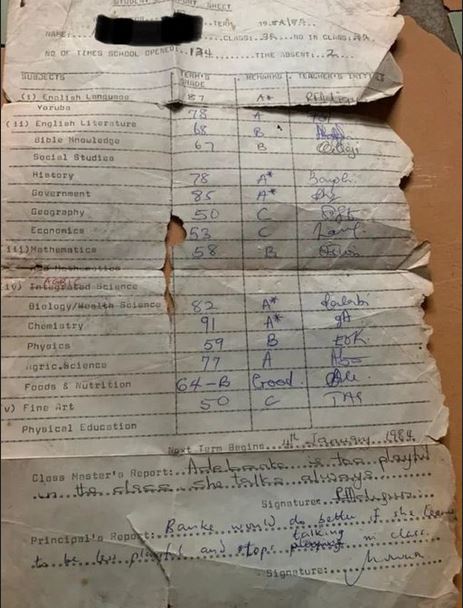 STUDENT'S REPORT SHEET
TERM 19
NAME: CLASS: 3A NO IN CLASS:
NO OF TIMES SCHOOL OPENED: 134 TIME ABSENT: 2
SUBJECTS TERM'S GRADE REMARKS TEACHER'S
(i) English Language 87 A*
Yoruba 78 A
(ii) English Literature 68 B
Bible Knowledge 67 B
Social Studies
History 78 A*
Government 85 A*
Geography 50 C
Economics 53 C
iii) Mathematics 58 B
Mathematics
iv) Integrated Science
Biology/Health Science 82 A*
Chemistry 91 A* gA
Physics 59 B
Agric.Science 77 A
Foods & Nutrition 64-B Good
v) Fine Art 50 C
Physical Education
Next Term Begins 4th January 1984
Class Master's Report: Adebanke is too playful
in the class. She talks always
Signature:
Principal's Report: Banke would do better if she learns
to be less playful and stops talking in class.
Signature: